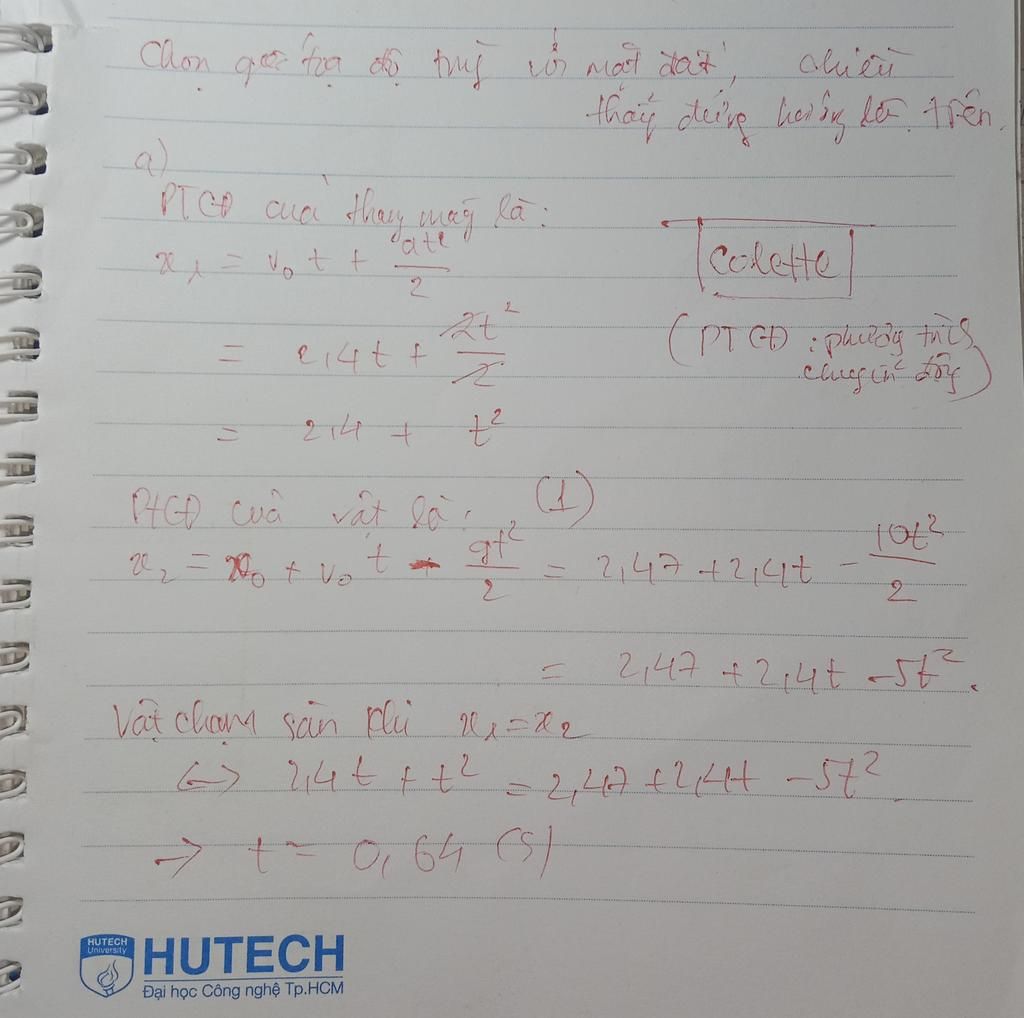 Chọn gốc tọa độ trùng với mặt đất, chiều
thẳng đứng hướng lên trên.
a)
PTCĐ của thang máy là:
x₁ = v₀t + at²/2
Colette
= 2,4t + 2t²/2
(PTCĐ : phương trình
chuyển động)
= 2,4 + t²
PTCĐ của vật là: (1)
x₂ = x₀ + v₀t - gt²/2 = 2,47 + 2,4t - 10t²/2
= 2,47 + 2,4t - 5t².
Vật chạm sàn khi x₁ = x₂
<=> 2,4t + t² = 2,47 + 2,4t - 5t²
-> t = 0,64 (s)
HUTECH
University
HUTECH
Đại học Công nghệ Tp.HCM